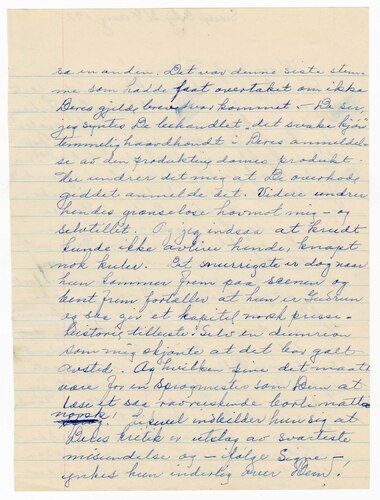 sa en anden. Det var denne siste stem-
me som hadde faat overtaket om ikke
Deres gilde brev var kommet. — De ser,
jeg syntes De behandlet "det svake kjön"
temmelig haardhendt i Deres anmeldel-
se av den produktive dames produkt.
Her undrer det mig at De overhode
giddet anmelde det. Videre undrer
hendes grænselöse hovmot mig — og
selvtillit. Og jeg indsaa at krudt
kunde ikke avlive hende, knapt
nok kuler. Det snurrigste er dog naar
hun kommer frem paa scenen og
bent frem fortæller at hun er Gudrun
og ska gje et kapitel norsk presse-
historie tilleste. Selv en
som mig skjönte at det bar galt
avsted. Og hvilken pine det maatte
være for en sprogmester som Dem at
læse et saa
norsk! Likevel indbilder hun sig at
Deres kritik er utslag av svarteste
misundelse og — ifölge Signe —
ynkes hun inderlig over Dem!